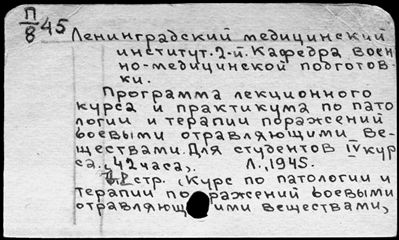 П/8 45
Ленинградский медицинский
институт. 2-й. Кафедра воен
но-медицинской подготов-
ки.
Программа лекционного
курса и практикума по пато
логии и терапии поражений
боевыми отравляющими ве-
ществами. Для студентов IV кур
са. (42 часа). Л., 1945.
8 стр. (Курс по патологии и
терапии поражений боевыми
отравляющими веществами,